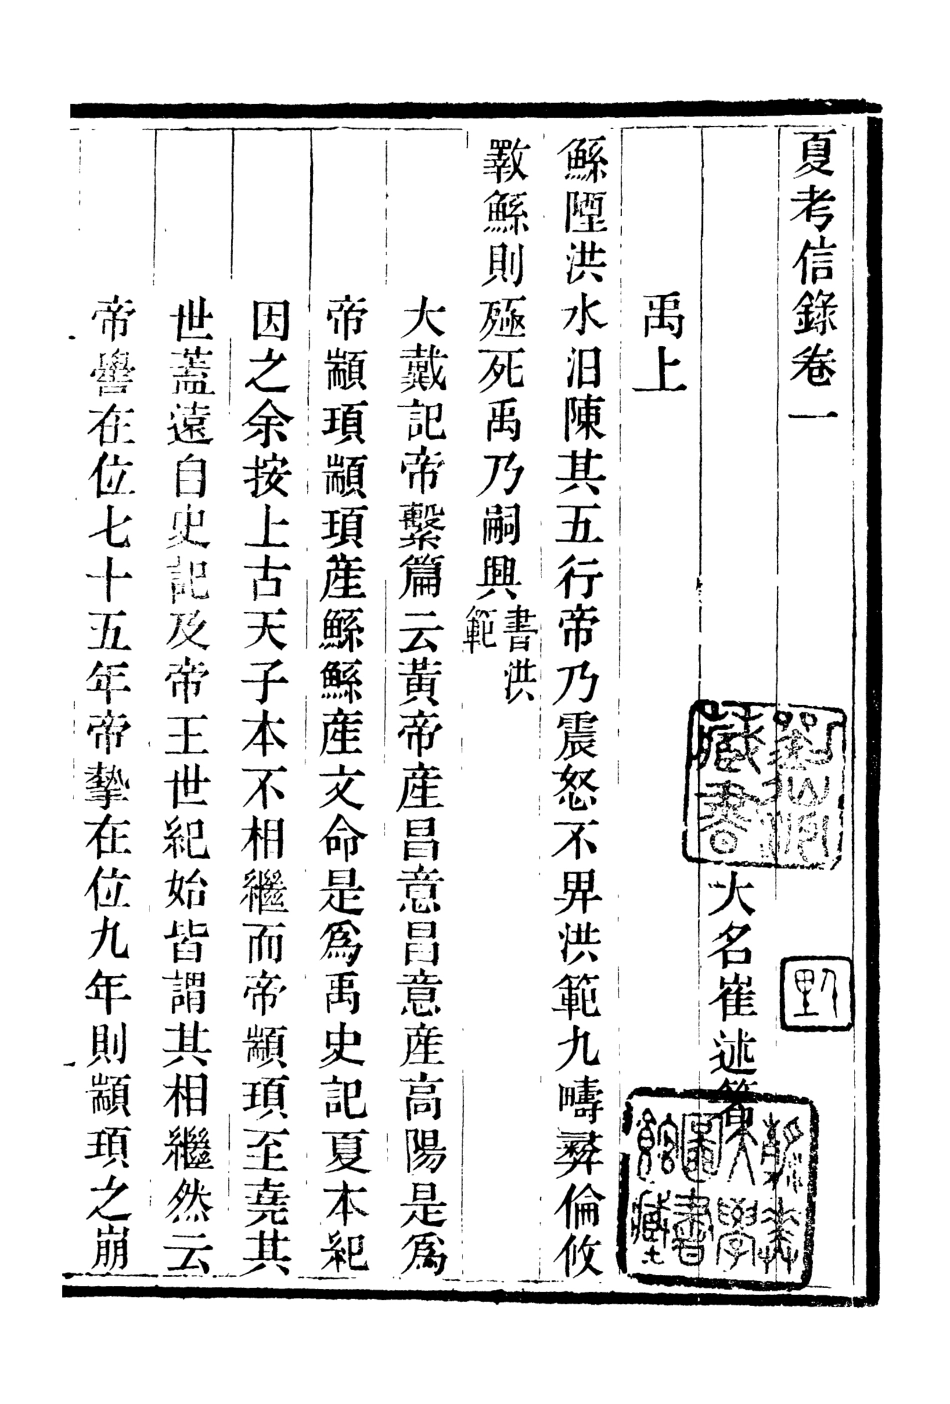 夏考信錄卷一
大名崔述
禹上
鯀陻洪水汨陳其五行帝乃震怒不畀洪範九疇彝倫攸
斁鯀則殛死禹乃嗣興書洪範
大戴記帝繫篇云黃帝產昌意昌意產高陽是爲
帝顓頊顓頊產鯀鯀產文命是爲禹史記夏本紀
因之余按上古天子本不相繼而帝顓頊至堯其
世蓋遠自史記及帝王世紀始皆謂其相繼然云
帝嚳在位七十五年帝摯在位九年則顓頊之崩
藏書
大學圖書館藏